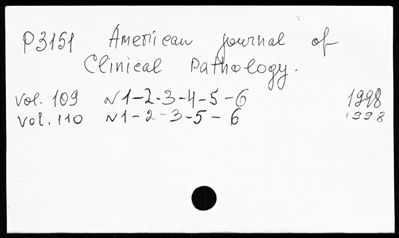 P3151 American journal of
Clinical Pathology.
vol. 109 N1-2-3-4-5-6 1998
vol. 110 N1-2-3-5-6 1998